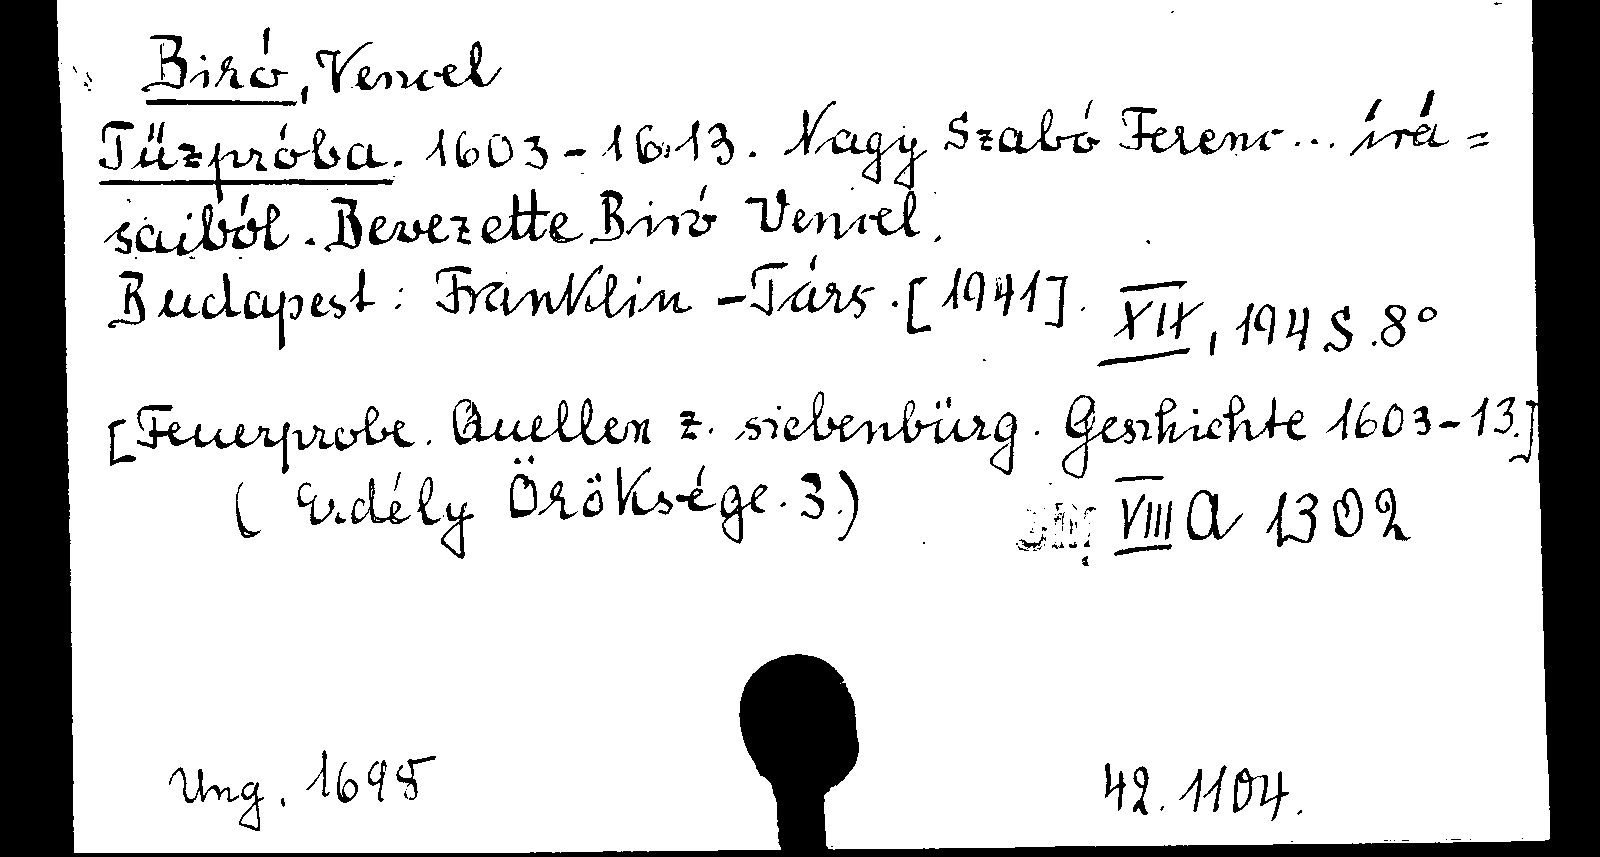 Biró, Vencel
Tűzpróba. 1603-1613. Nagy Szabó Ferenc... írá=
saiból. Bevezette Biró Vencel.
Budapest: Franklin-Társ. [1941]. XIX, 194 S. 8°
[Feuerprobe. Quellen z. siebenbürg. Geschichte 1603-13.]
( Erdély Öröksége. 3.) VIII A 1302
Ung. 1695 42. 1104.